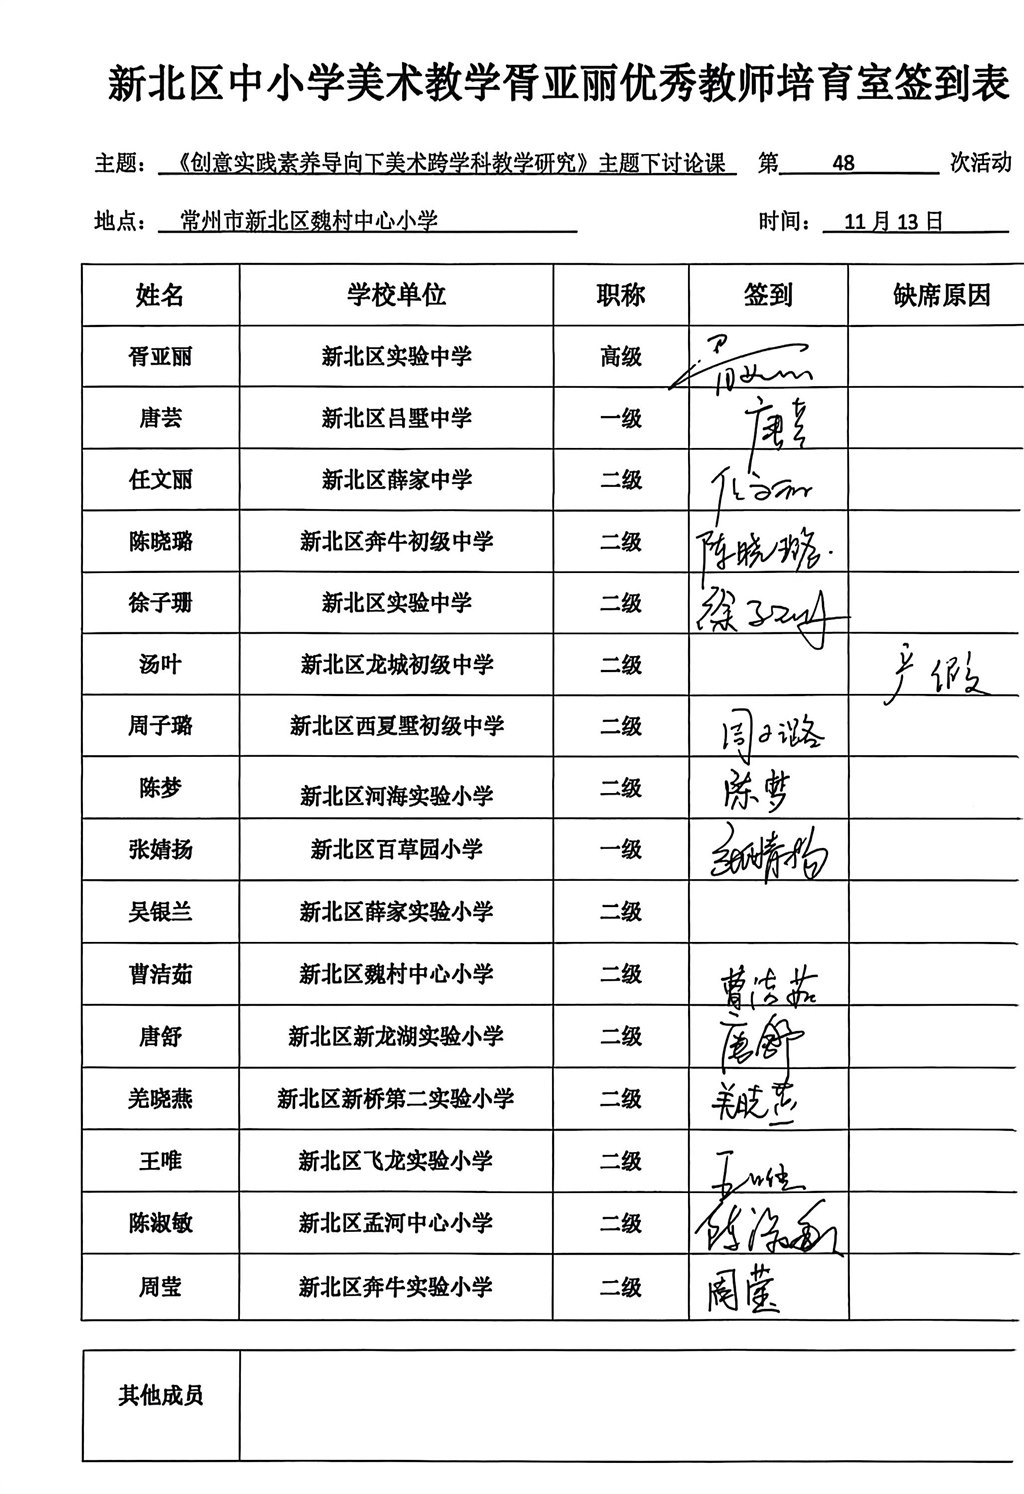 新北区中小学美术教学胥亚丽优秀教师培育室签到表
主题： 《创意实践素养导向下美术跨学科教学研究》主题下讨论课 第 48 次活动
地点： 常州市新北区魏村中心小学 时间： 11月13日
姓名 学校单位 职称 签到 缺席原因
胥亚丽 新北区实验中学 高级 胥亚丽
唐芸 新北区吕墅中学 一级 唐芸
任文丽 新北区薛家中学 二级 任文丽
陈晓璐 新北区奔牛初级中学 二级 陈晓璐
徐子珊 新北区实验中学 二级 徐子珊
汤叶 新北区龙城初级中学 二级 产假
周子璐 新北区西夏墅初级中学 二级 周子璐
陈梦 新北区河海实验小学 二级 陈梦
张婧扬 新北区百草园小学 一级 张婧扬
吴银兰 新北区薛家实验小学 二级
曹洁茹 新北区魏村中心小学 二级 曹洁茹
唐舒 新北区新龙湖实验小学 二级 唐舒
羌晓燕 新北区新桥第二实验小学 二级 羌晓燕
王唯 新北区飞龙实验小学 二级 王唯
陈淑敏 新北区孟河中心小学 二级 陈淑敏
周莹 新北区奔牛实验小学 二级 周莹
其他成员